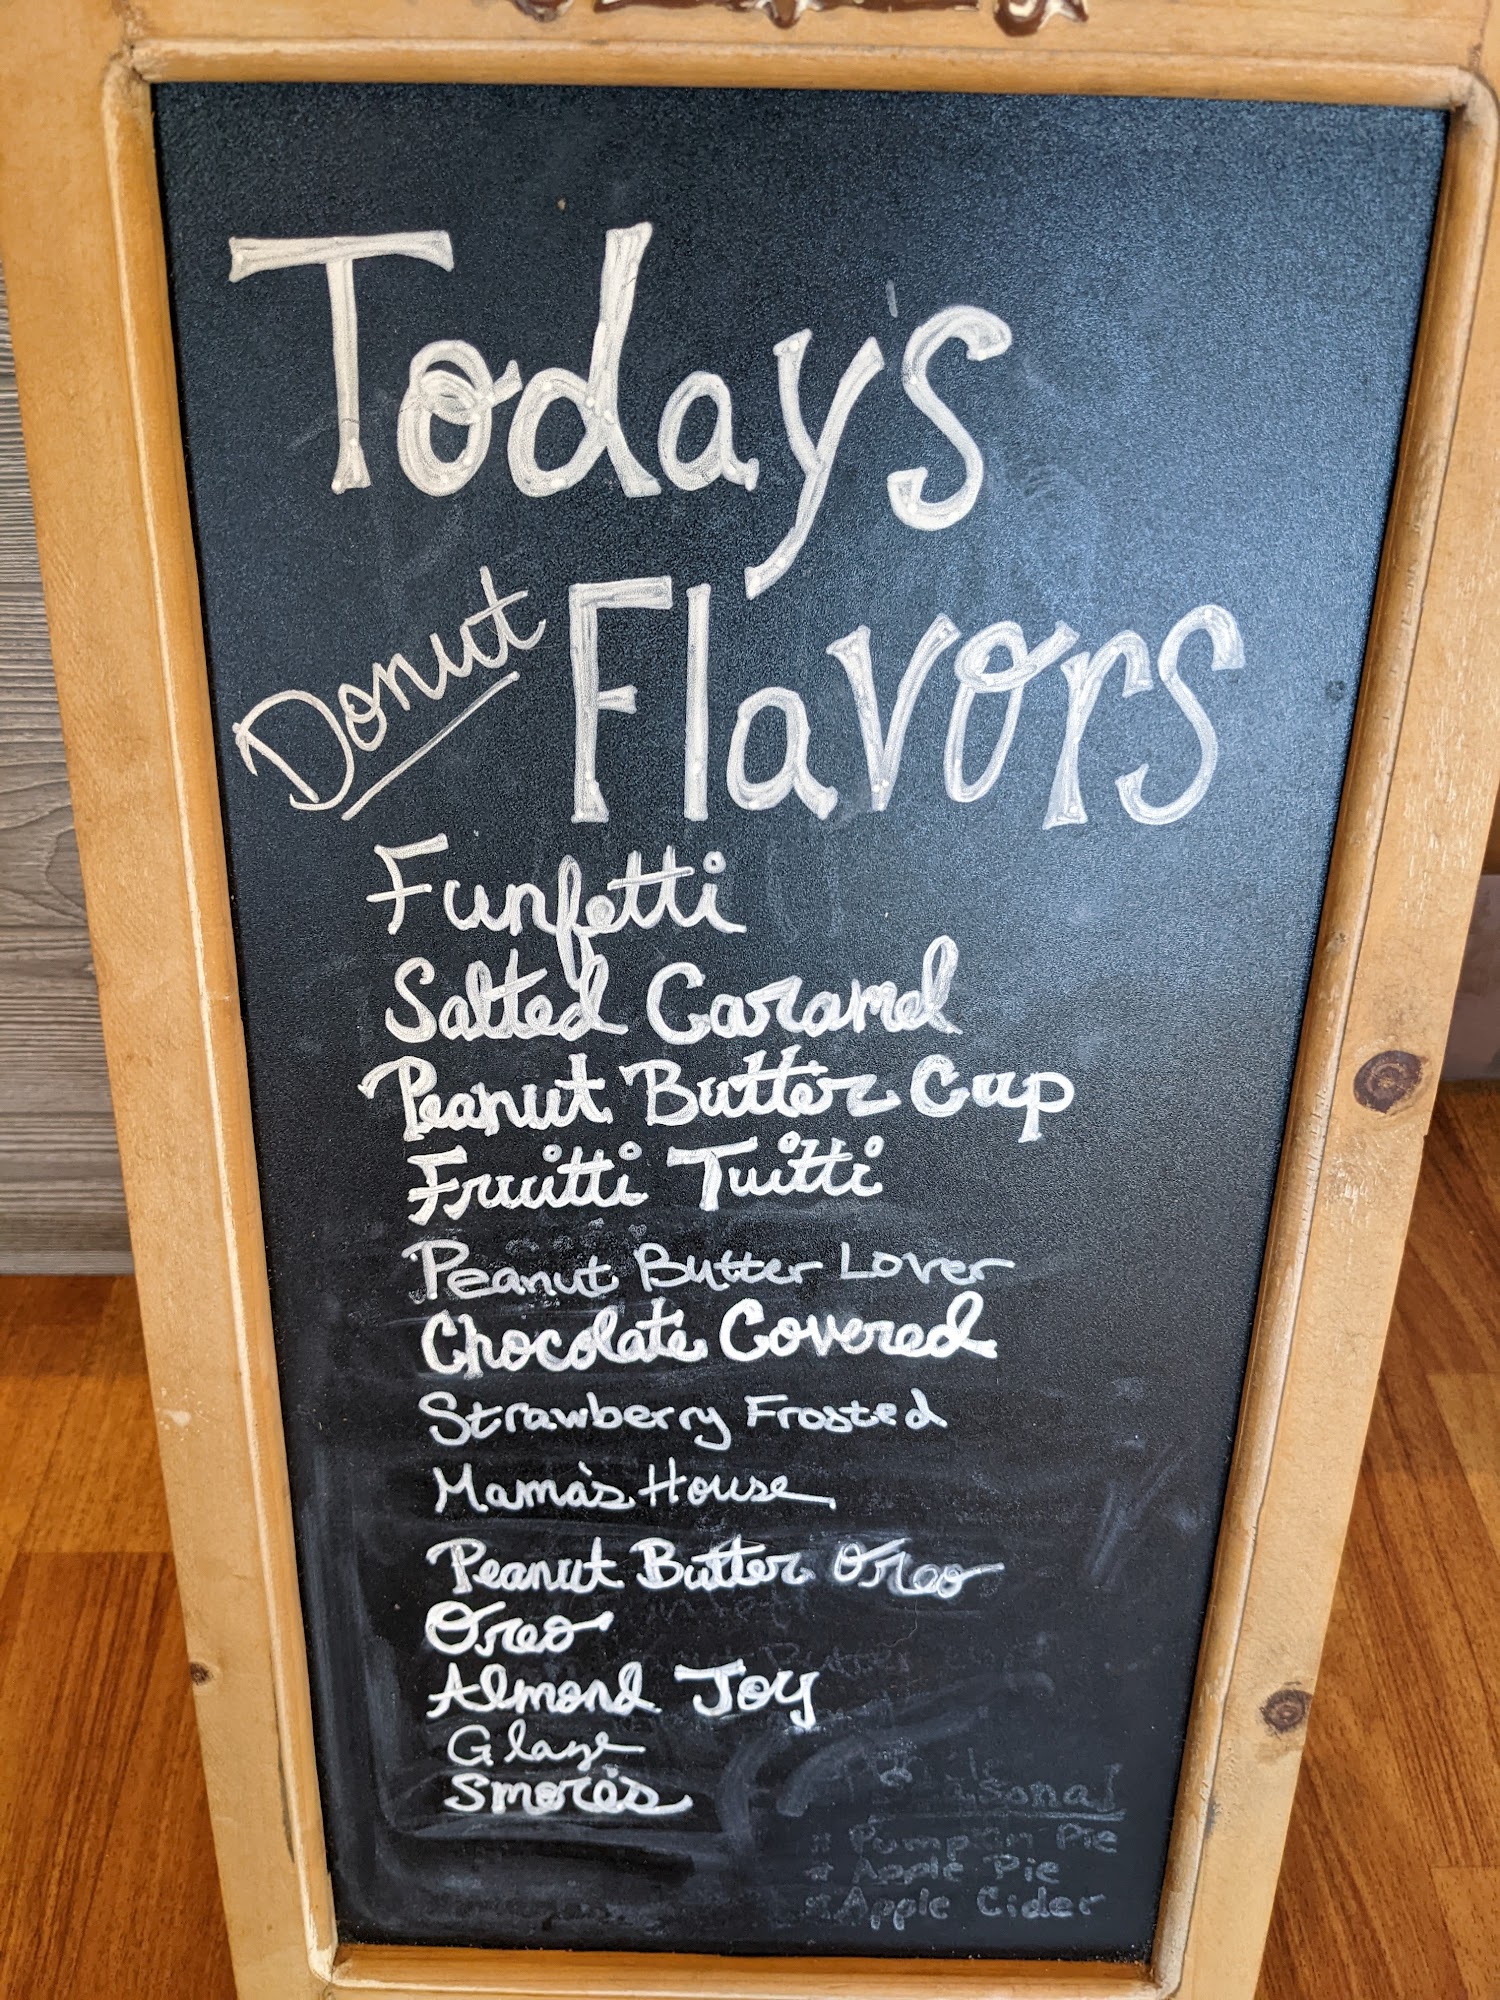 Today's
Donut Flavors
Funfetti
Salted Caramel
Peanut Butter Cup
Fruitti Tuitti
Peanut Butter Lover
Chocolate Covered
Strawberry Frosted
Mama's House
Peanut Butter Oreo
Oreo
Almond Joy
Glaze
Smore's
Seasonal
* Pumpkin Pie
* Apple Pie
* Apple Cider